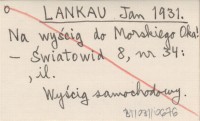 LANKAU Jan 1931.
Na wyścig do Morskiego Oka!
– Światowid 8, nr 34:
, il.
Wyścig samochodowy.